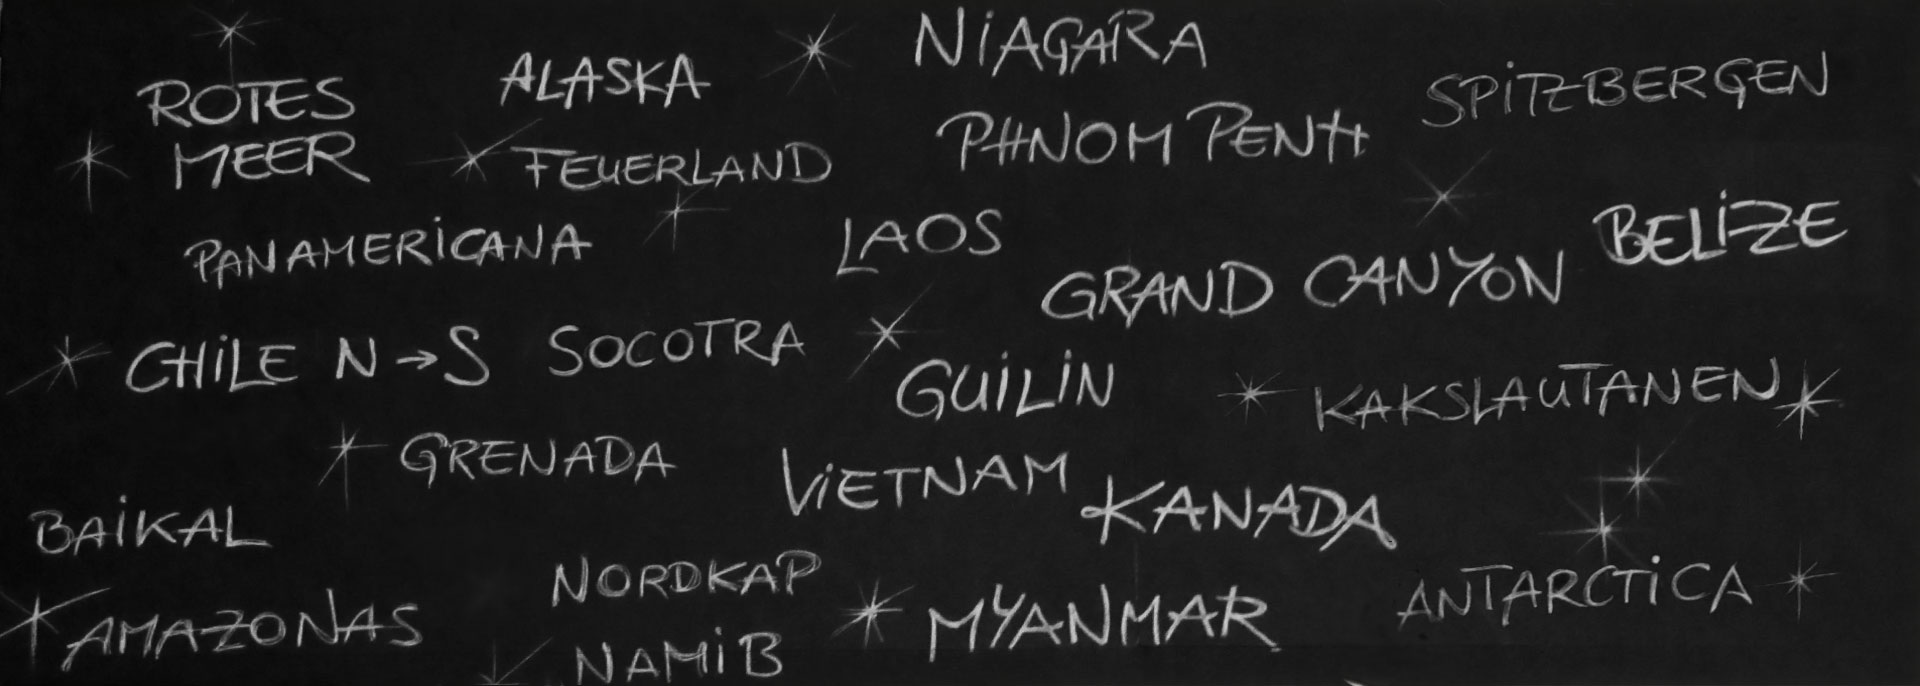 NIAGARA
ALASKA
SPITZBERGEN
ROTES
MEER
PHNOM PENH
FEUERLAND
PANAMERICANA
LAOS
BELIZE
GRAND CANYON
CHILE N→S
SOCOTRA
GUILIN
KAKSLAUTANEN
GRENADA
VIETNAM
KANADA
BAIKAL
NORDKAP
ANTARCTICA
AMAZONAS
MYANMAR
NAMIB